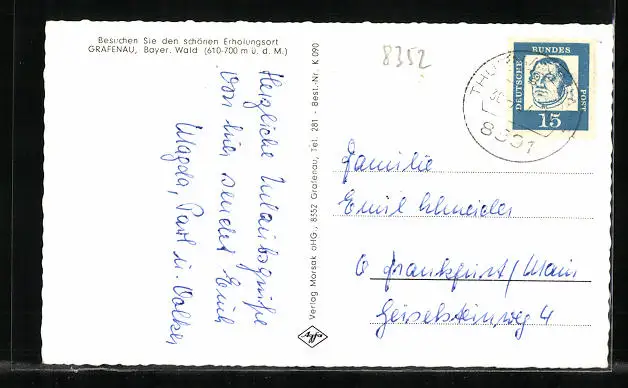 Besuchen Sie den schönen Erholungsort
GRAFENAU, Bayer. Wald (610-700 m ü. d. M.)
Herzliche Urlaubsgrüße
von hier sendet Euch
Magda, Paul u. Volker
Verlag Morsak oHG., 8352 Grafenau, Tel. 281 - Best.-Nr. K 090
Agfa
8352
DEUTSCHE BUNDES POST
15
8501
Familie
Emil Schneider
6 Frankfurt/Main
Geiselsteinweg 4